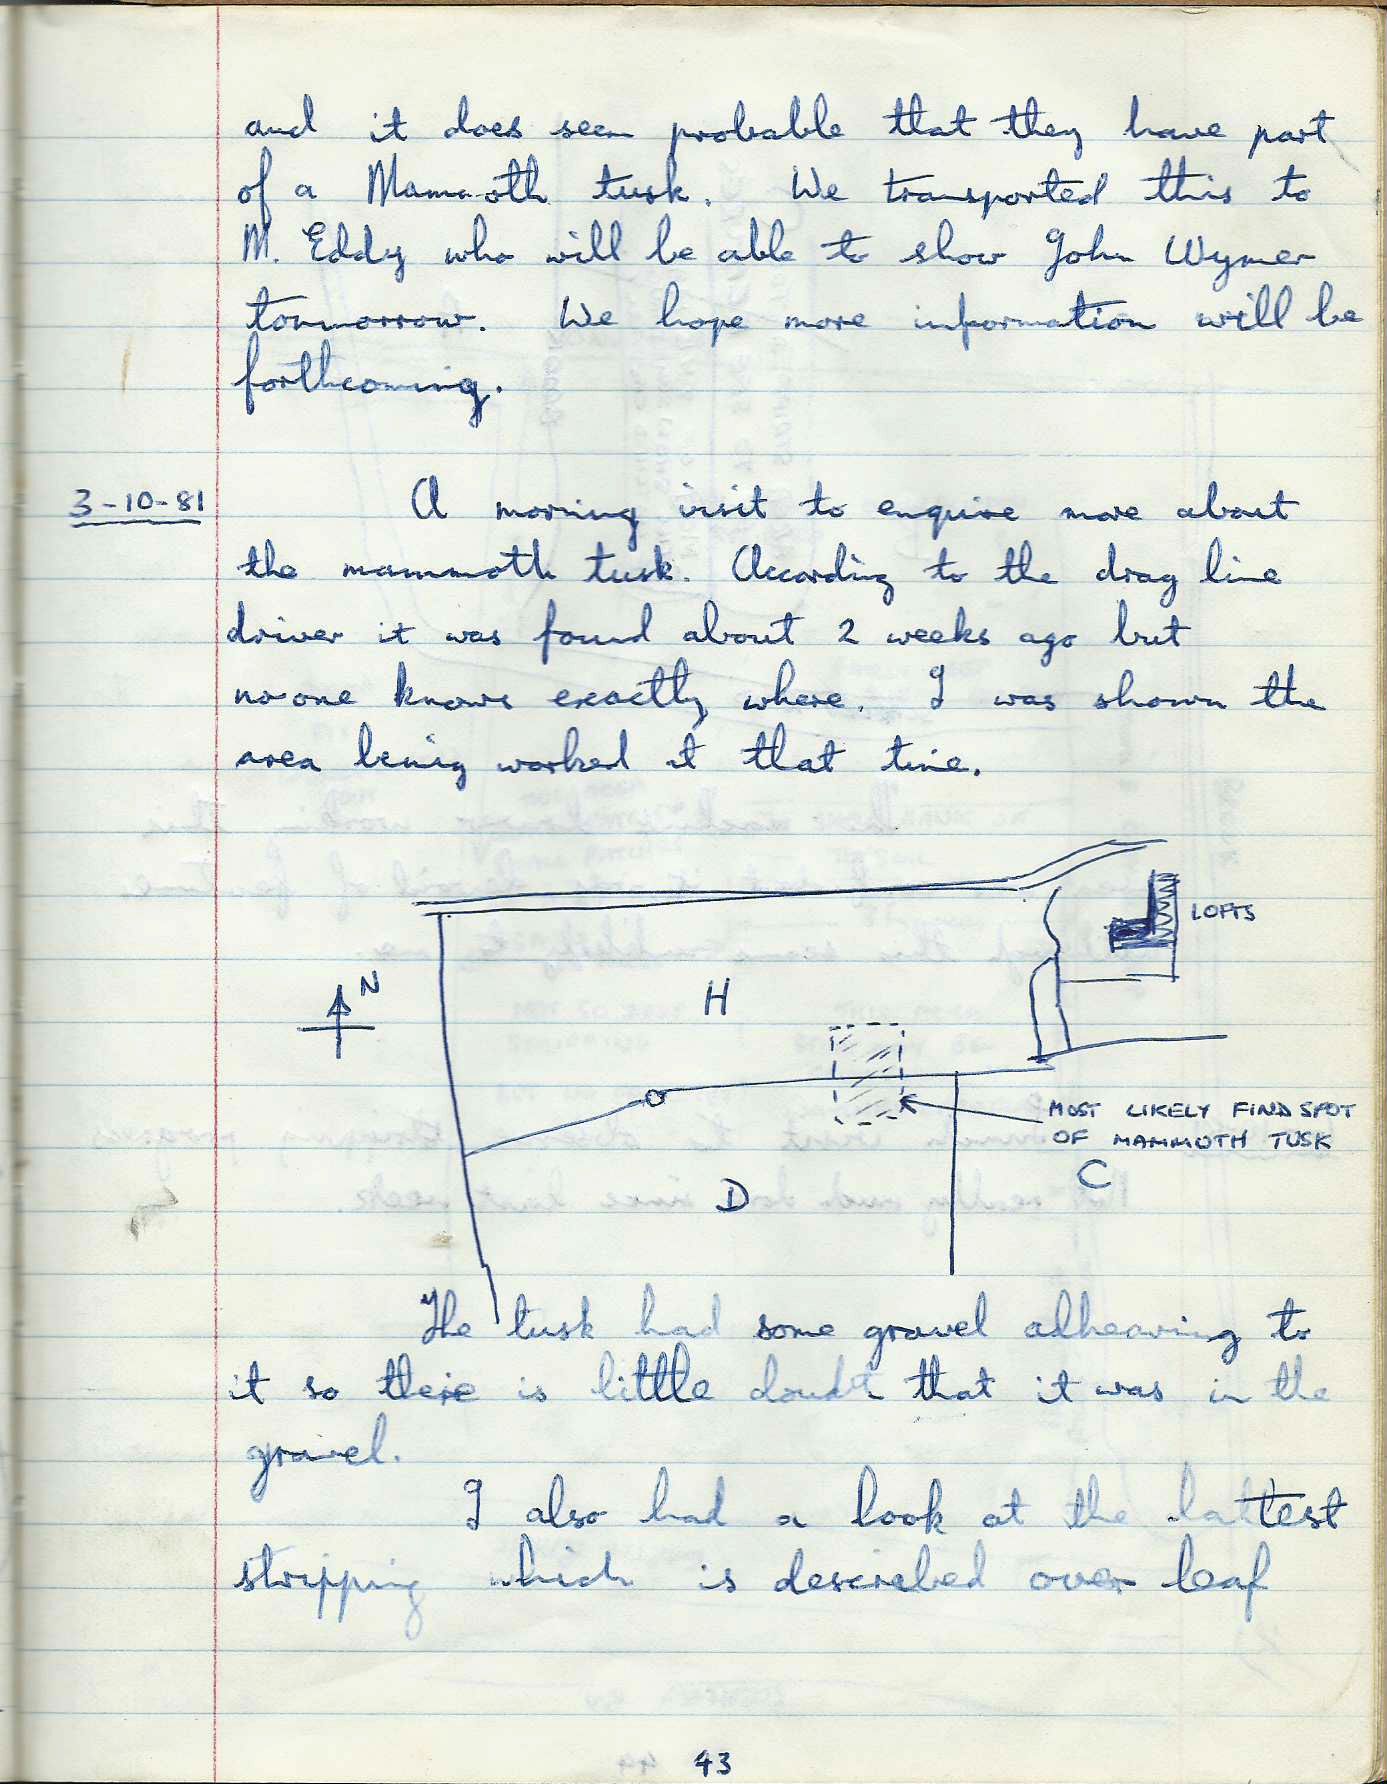 and it does seem probable that they have part
of a Mammoth tusk. We transported this to
M. Eddy who will be able to show John Wymer
tommorrow. We hope more information will be
forthcoming.
3-10-81
A morning visit to enquire more about
the mammoth tusk. According to the drag line
driver it was found about 2 weeks ago but
no one knows exactly where. I was shown the
area being worked at that time.
LOFTS
N
H
MOST LIKELY FINDSPOT
OF MAMMOTH TUSK
C
D
The tusk had some gravel adhearing to
it so there is little doubt that it was in the
gravel.
I also had a look at the lattest
stripping which is described over leaf
43